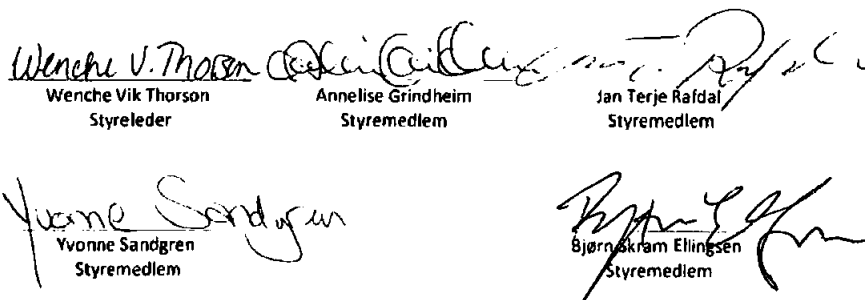 Wenche V. Thorson
Wenche Vik Thorson
Styreleder
Annelise Grindheim
Styremedlem
Jan Terje Rafdal
Styremedlem
Yvonne Sandgren
Yvonne Sandgren
Styremedlem
Bjørn Skram Ellingsen
Styremedlem